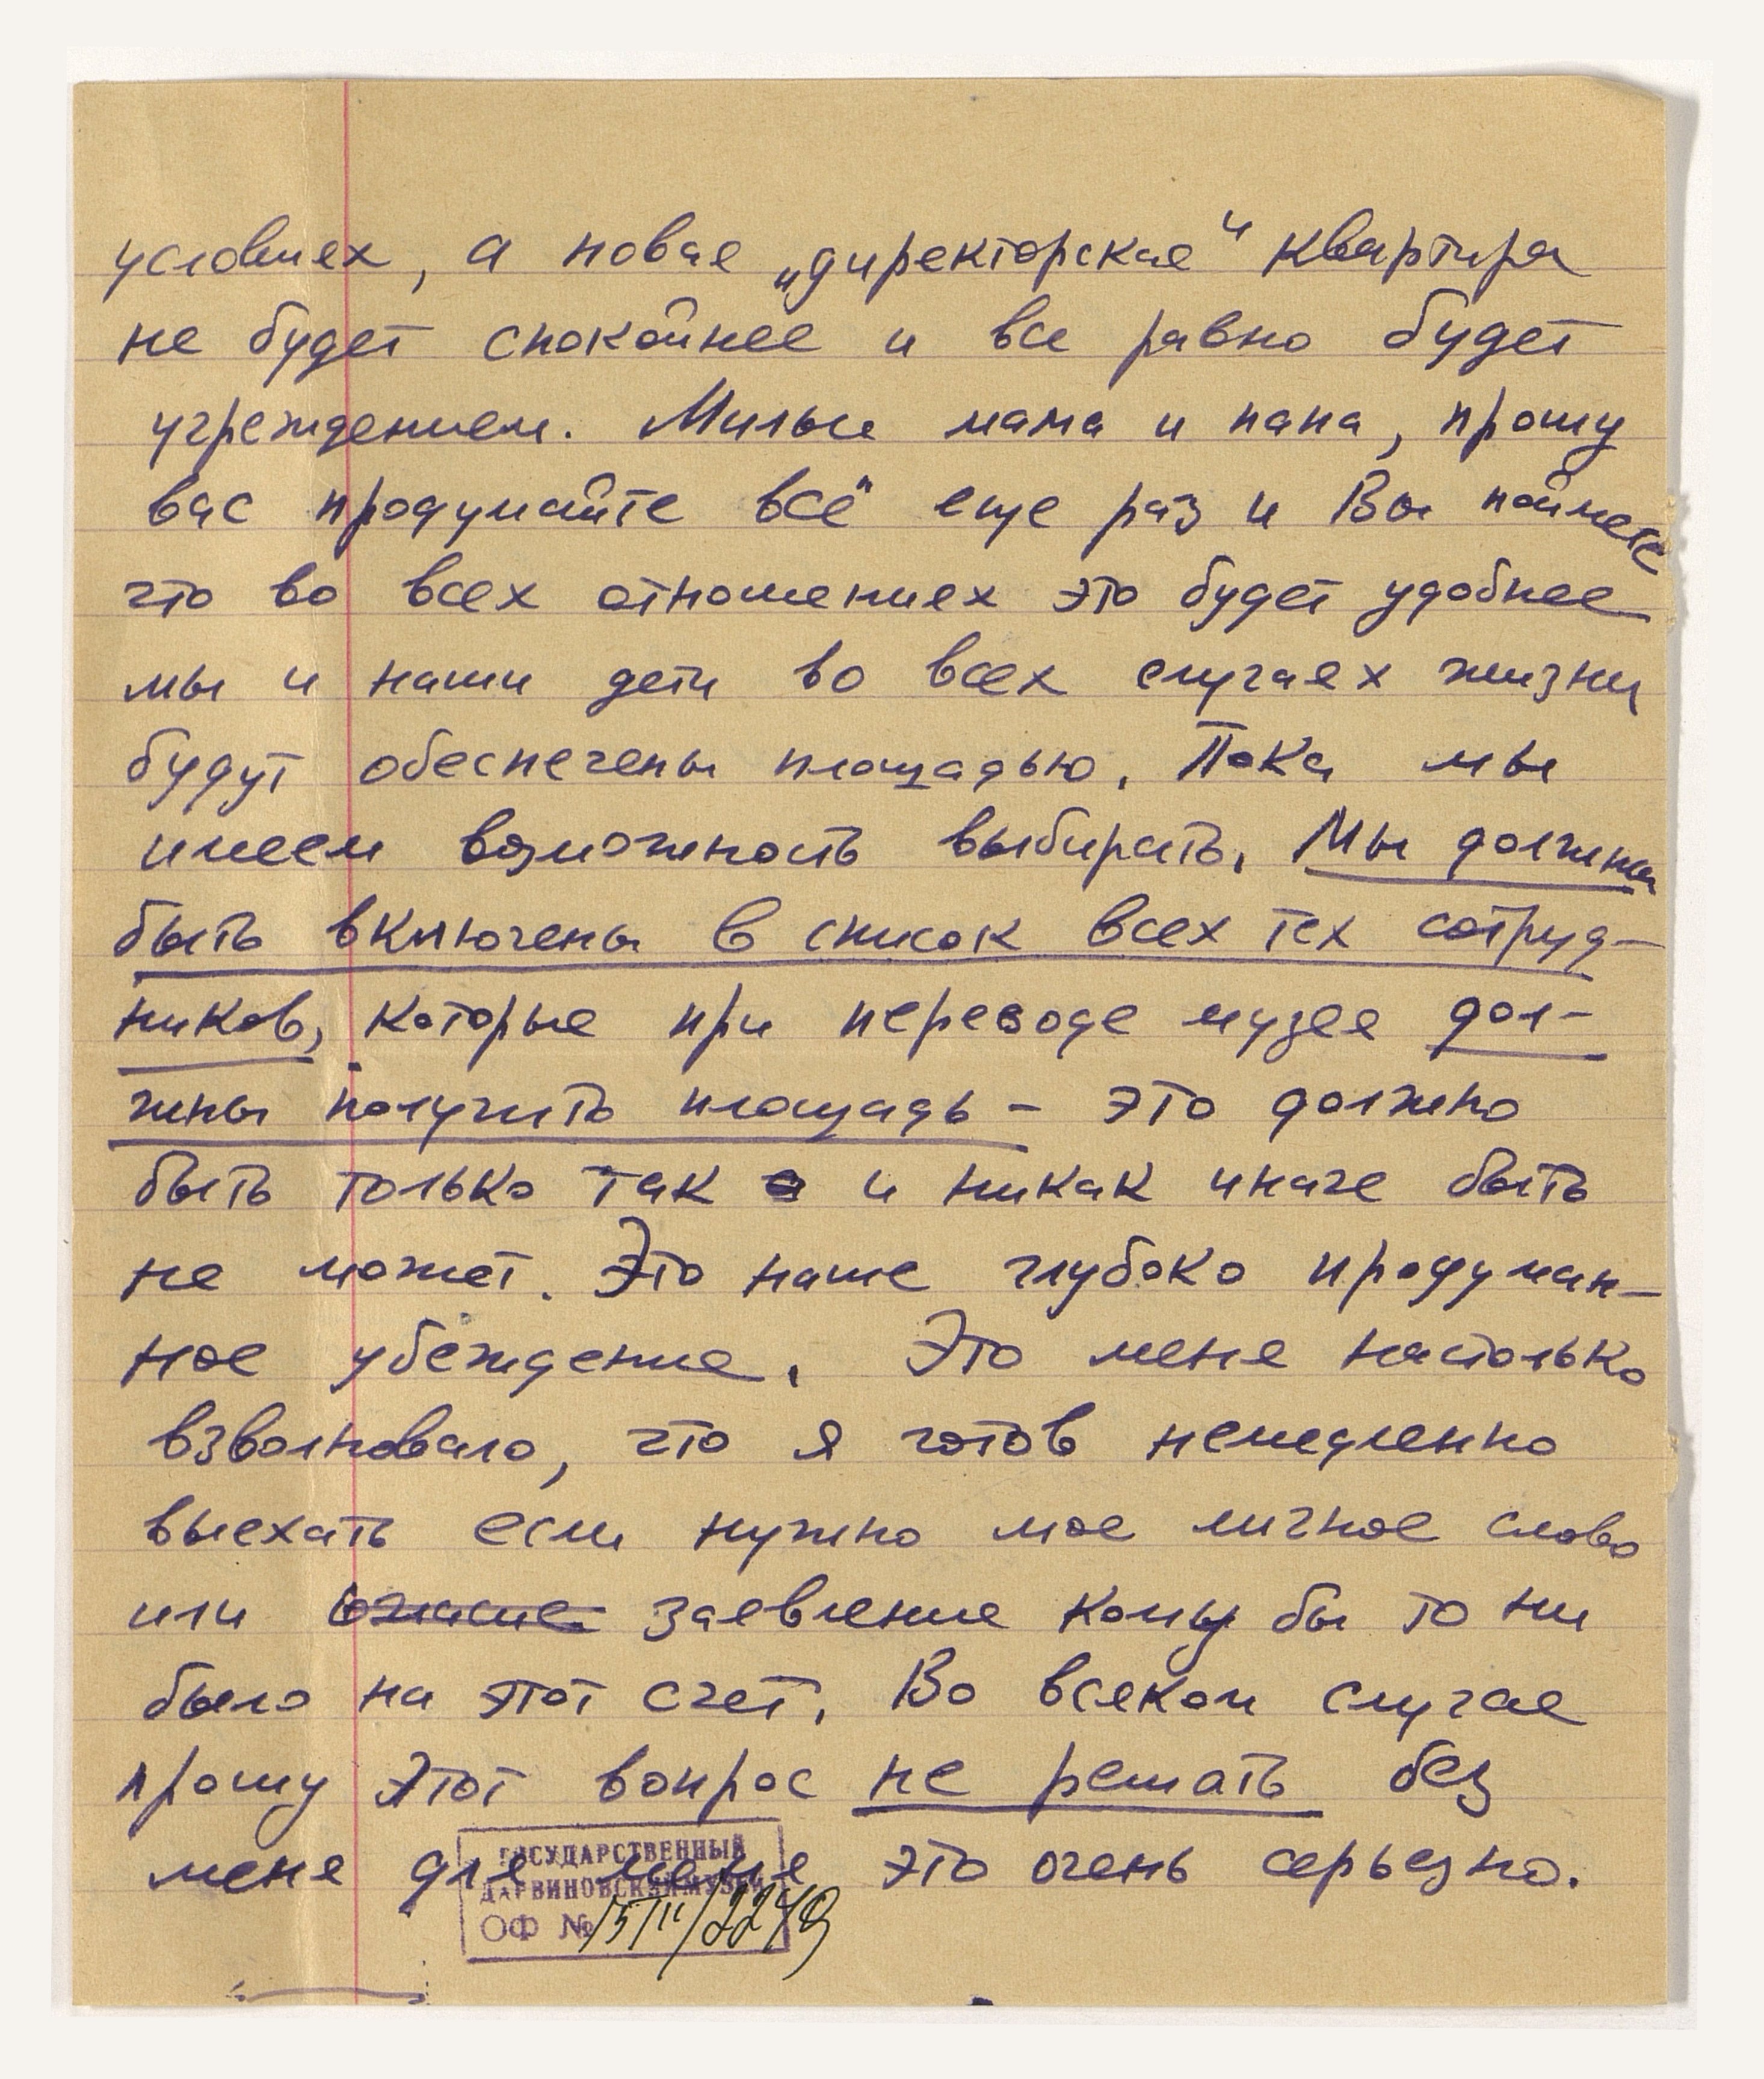 условиях, а новая „директорская“ квартира
не будет спокойнее и все равно будет
учреждением. Милые мама и папа, прошу
вас продумайте всё еще раз и Вы поймете
что во всех отношениях это будет удобнее
мы и наши дети во всех случаях жизни
будут обеспечены площадью. Пока мы
имеем возможность выбирать. Мы должны
быть включены в список всех тех сотруд-
ников, которые при переводе музея дол-
жны получить площадь – это должно
быть только так и никак иначе быть
не может. Это наше глубоко продуман-
ное убеждение. Это меня настолько
взволновало, что я готов немедленно
выехать если нужно мое личное слово
или заявление кому бы то ни
было на этот счет. Во всяком случае
прошу этот вопрос не решать без
меня для меня это очень серьезно.
ГОСУДАРСТВЕННЫЙ
ДАРВИНОВСКИЙ МУЗЕЙ
ОФ №15111/2249